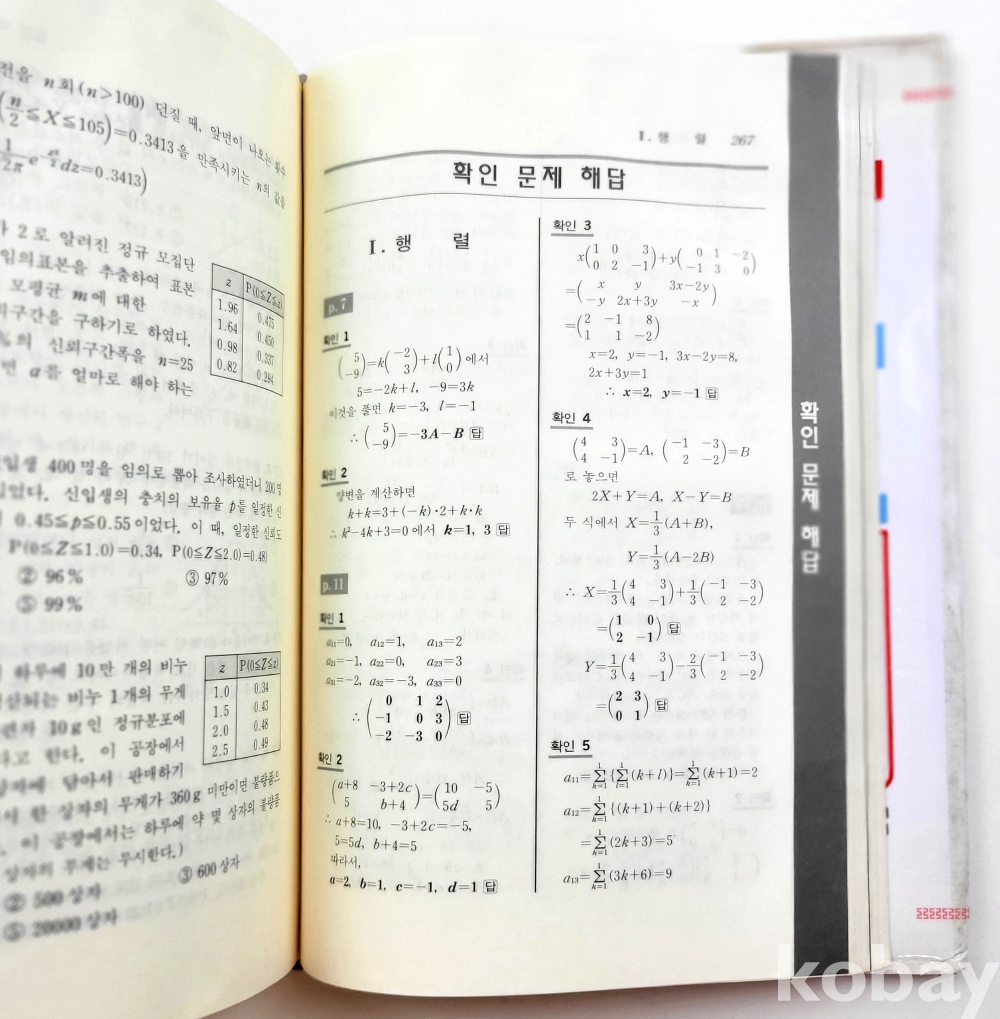 전을 n회(n>100) 던질 때, 앞면이 나오는 횟수
(n/2≦X≦105)=0.3413을 만족시키는 n의 값을
dz=0.3413)
가 2로 알려진 정규 모집단
임의표본을 추출하여 표본
모평균 m에 대한
뢰구간을 구하기로 하였다.
%의 신뢰구간폭을 n=25
면 a를 얼마로 해야 하는
z P(0≦Z≦z)
1.96 0.475
1.64 0.450
0.98 0.337
0.82 0.294
입생 400명을 임의로 뽑아 조사하였더니 200명
있었다. 신입생의 충치의 보유율 p를 일정한 신
0.45≦p≦0.55이었다. 이 때, 일정한 신뢰도
P(0≦Z≦1.0)=0.34, P(0≦Z≦2.0)=0.48)
② 96% ③ 97%
⑤ 99%
하루에 10만 개의 비누
생산되는 비누 1개의 무게
편차 10g인 정규분포에
다고 한다. 이 공장에서
상자에 담아서 판매하기
서 한 상자의 무게가 360g 미만이면 불량품으
이 공장에서는 하루에 약 몇 상자의 불량품
상자의 무게는 무시한다.)
② 500상자 ③ 600상자
⑤ 20000상자
z P(0≦Z≦z)
1.0 0.34
1.5 0.43
2.0 0.48
2.5 0.49
Ⅰ. 행 렬 267
확인 문제 해답
Ⅰ. 행 렬
p. 7
확인 1
(5 / -9)=k(-2 / 3)+l(1 / 0)에서
5=-2k+l, -9=3k
이것을 풀면 k=-3, l=-1
∴ (5 / -9)=-3A-B 답
확인 2
양변을 계산하면
k+k=3+(-k)·2+k·k
∴ k²-4k+3=0에서 k=1, 3 답
p. 11
확인 1
a₁₁=0, a₁₂=1, a₁₃=2
a₂₁=-1, a₂₂=0, a₂₃=3
a₃₁=-2, a₃₂=-3, a₃₃=0
∴ (0 1 2 / -1 0 3 / -2 -3 0) 답
확인 2
(a+8 -3+2c / 5 b+4)=(10 -5 / 5d 5)
∴ a+8=10, -3+2c=-5,
5=5d, b+4=5
따라서,
a=2, b=1, c=-1, d=1 답
확인 3
x(1 0 3 / 0 2 -1)+y(0 1 -2 / -1 3 0)
=(x y 3x-2y / -y 2x+3y -x)
=(2 -1 8 / 1 1 -2)
x=2, y=-1, 3x-2y=8,
2x+3y=1
∴ x=2, y=-1 답
확인 4
(4 3 / 4 -1)=A, (-1 -3 / 2 -2)=B
로 놓으면
2X+Y=A, X-Y=B
두 식에서 X=1/3(A+B),
Y=1/3(A-2B)
∴ X=1/3(4 3 / 4 -1)+1/3(-1 -3 / 2 -2)
=(1 0 / 2 -1) 답
Y=1/3(4 3 / 4 -1)-2/3(-1 -3 / 2 -2)
=(2 3 / 0 1) 답
확인 5
a₁₁=Σ(k=1→1){Σ(l=1→1)(k+l)}=Σ(k=1→1)(k+1)=2
a₁₂=Σ(k=1→1){(k+1)+(k+2)}
=Σ(k=1→1)(2k+3)=5
a₁₃=Σ(k=1→1)(3k+6)=9
확인 문제 해답
kobay